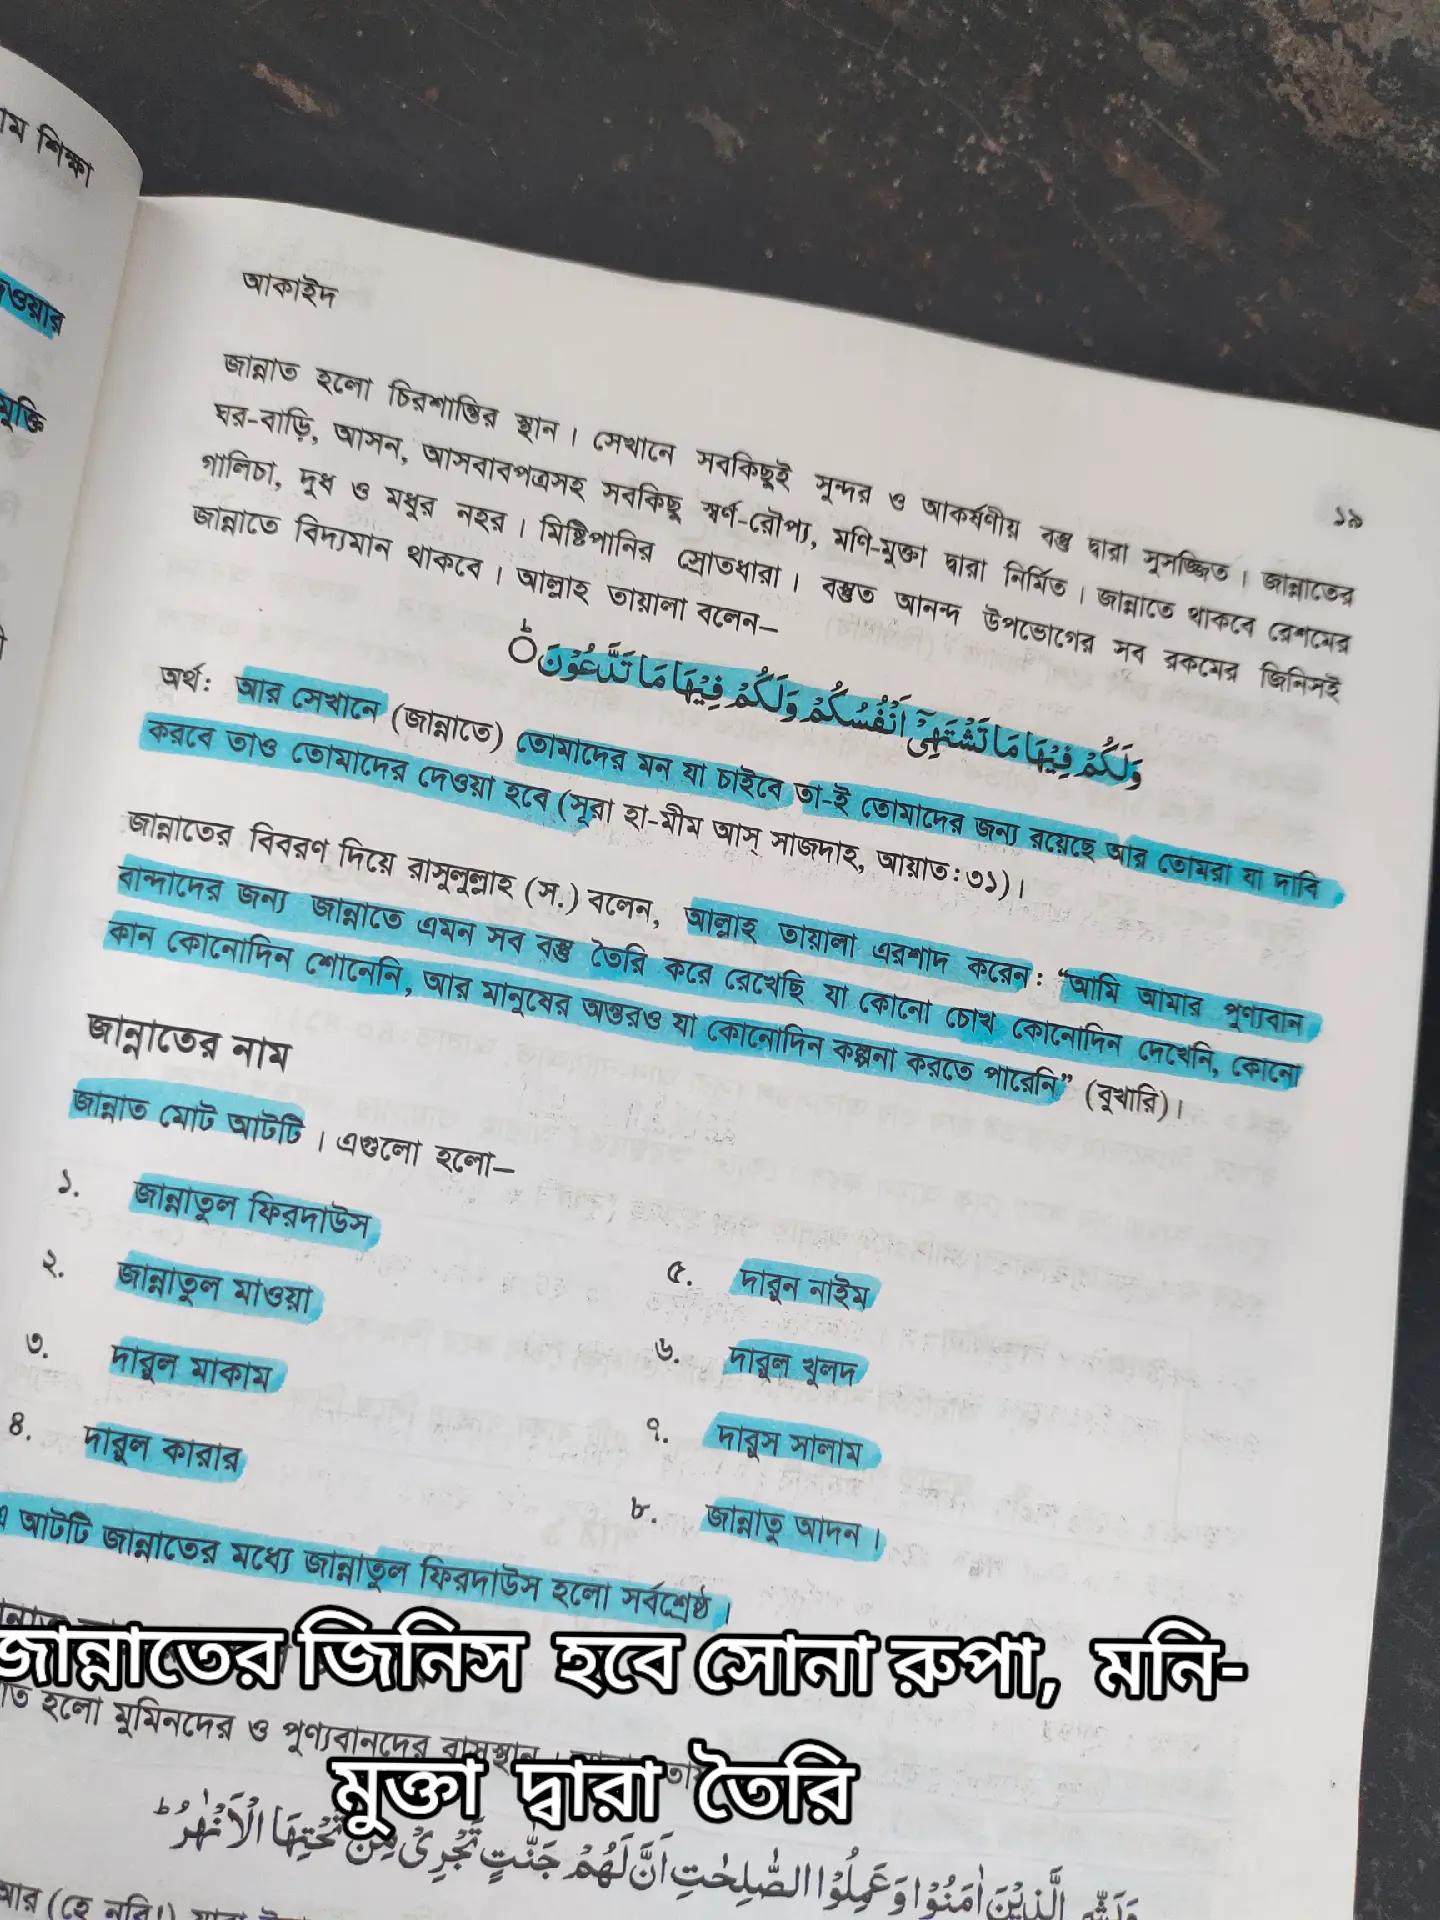 াম শিক্ষা
দেওয়ার
মুক্তি
আকাইদ
১৯
জান্নাত হলো চিরশান্তির স্থান। সেখানে সবকিছুই সুন্দর ও আকর্ষণীয় বস্তু দ্বারা সুসজ্জিত। জান্নাতের
ঘর-বাড়ি, আসন, আসবাবপত্রসহ সবকিছু স্বর্ণ-রৌপ্য, মণি-মুক্তা দ্বারা নির্মিত। জান্নাতে থাকবে রেশমের
গালিচা, দুধ ও মধুর নহর। মিষ্টিপানির স্রোতধারা। বস্তুত আনন্দ উপভোগের সব রকমের জিনিসই
জান্নাতে বিদ্যমান থাকবে। আল্লাহ তায়ালা বলেন–
وَلَكُمْ فِيْهَا مَا تَشْتَهِيْٓ اَنْفُسُكُمْ وَلَكُمْ فِيْهَا مَا تَدَّعُوْنَ ۝ؕ
অর্থ: আর সেখানে (জান্নাতে) তোমাদের মন যা চাইবে তা-ই তোমাদের জন্য রয়েছে আর তোমরা যা দাবি
করবে তাও তোমাদের দেওয়া হবে (সূরা হা-মীম আস্ সাজদাহ, আয়াত: ৩১)।
জান্নাতের বিবরণ দিয়ে রাসুলুল্লাহ (স.) বলেন, আল্লাহ তায়ালা এরশাদ করেন: “আমি আমার পুণ্যবান
বান্দাদের জন্য জান্নাতে এমন সব বস্তু তৈরি করে রেখেছি যা কোনো চোখ কোনোদিন দেখেনি, কোনো
কান কোনোদিন শোনেনি, আর মানুষের অন্তরও যা কোনোদিন কল্পনা করতে পারেনি” (বুখারি)।
জান্নাতের নাম
জান্নাত মোট আটটি। এগুলো হলো–
১. জান্নাতুল ফিরদাউস
২. জান্নাতুল মাওয়া
৩. দারুল মাকাম
৪. দারুল কারার
৫. দারুন নাইম
৬. দারুল খুলদ
৭. দারুস সালাম
৮. জান্নাতু আদন।
এ আটটি জান্নাতের মধ্যে জান্নাতুল ফিরদাউস হলো সর্বশ্রেষ্ঠ।
জান্নাতের জিনিস হবে সোনা রুপা, মনি-
াত হলো মুমিনদের ও পুণ্যবানদের বাসস্থান।
মুক্তা দ্বারা তৈরি
وَبَشِّرِ الَّذِيْنَ اٰمَنُوْا وَعَمِلُوا الصّٰلِحٰتِ اَنَّ لَهُمْ جَنّٰتٍ تَجْرِيْ مِنْ تَحْتِهَا الْاَنْهٰرُ ؕ
আর (হে নবি!) যারা